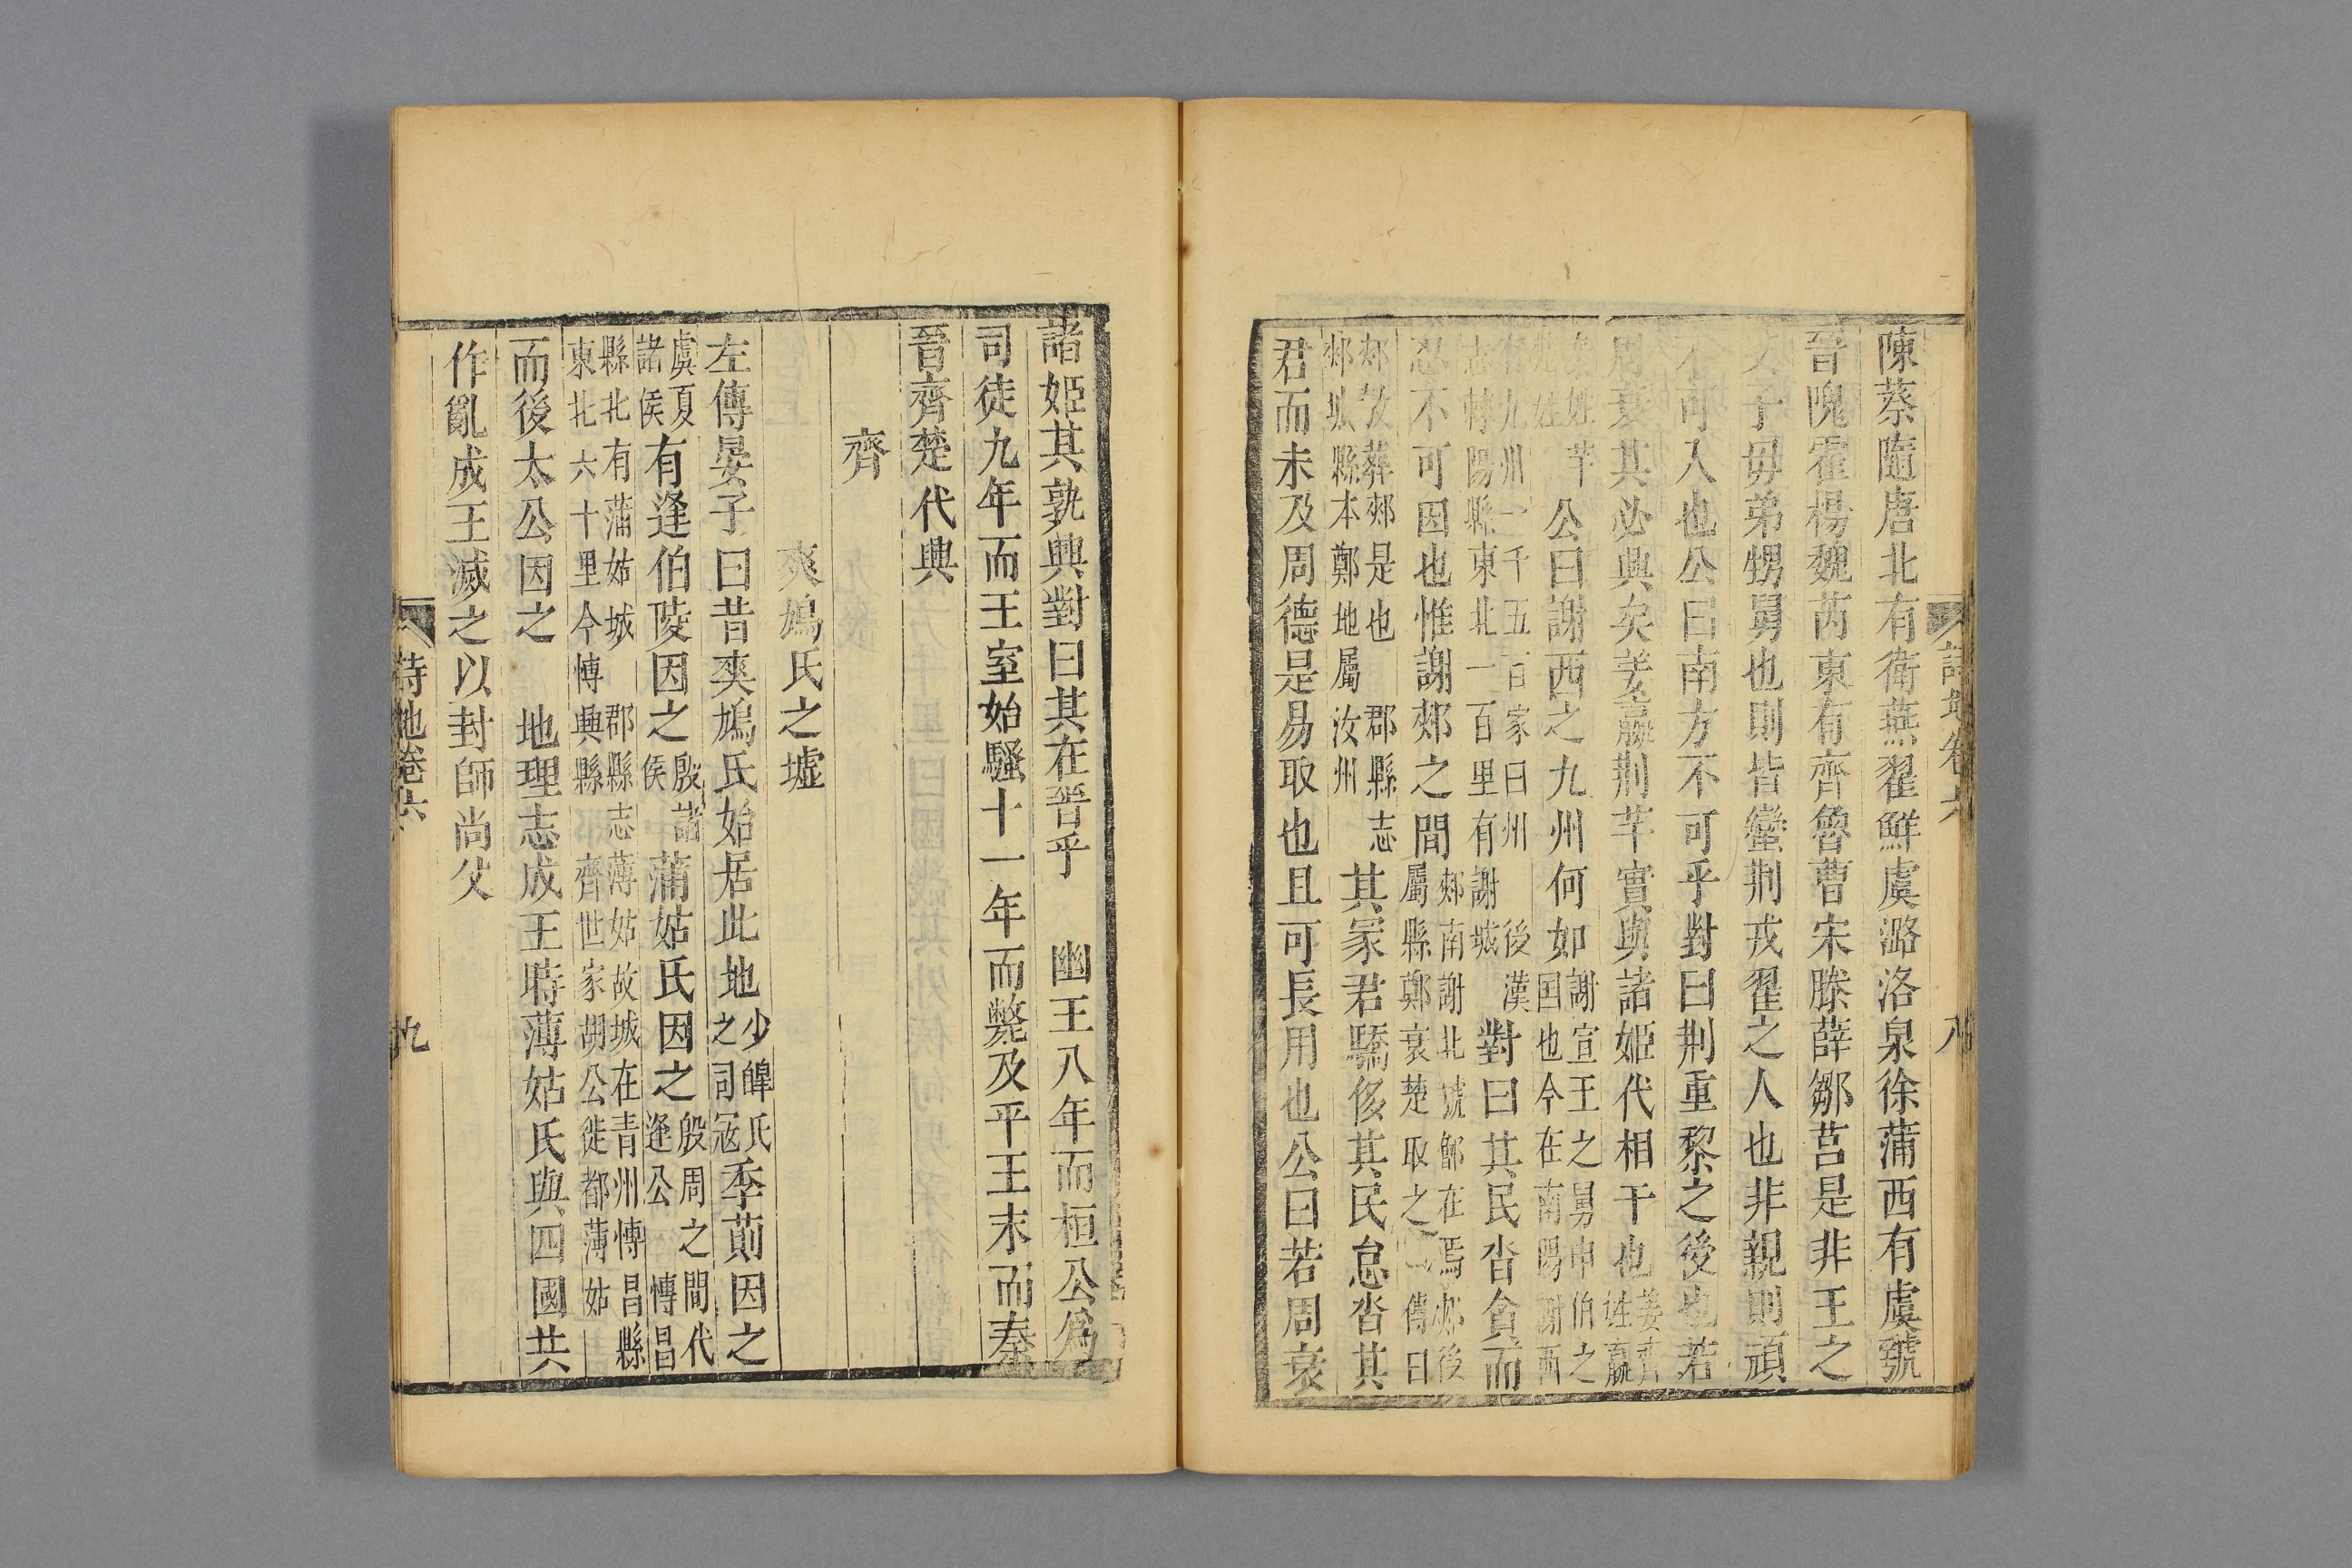 詩地卷六
八
陳蔡隨唐北有衛燕翟鮮虞潞洛泉徐蒲西有虞虢
晉隗霍楊魏芮東有齊魯曹宋滕薛鄒莒是非王之
子毋弟甥舅也則皆蠻荆戎翟之人也非親則頑
不可入也公曰南方不可乎對曰荆重黎之後也若
周衰其必興矣姜嬴荆芈實與諸姬代相干也姜齊姓嬴
姓芈公曰謝西之九州何如謝宣王之舅申伯之國也今在南陽謝西
有九州一千五百家曰州後漢志棘陽縣東北一百里有謝城對曰其民沓貪而
忍不可因也惟謝郟之間郟南謝北虢鄶在焉郟後屬縣鄭衰楚取之傳曰
郟敖葬郟是也郡縣志郟城縣本鄭地屬汝州其冢君驕侈其民怠沓其
君而未及周德是易取也且可長用也公曰若周衰
諸姬其孰興對曰其在晉乎　幽王八年而桓公爲
司徒九年而王室始騷十一年而斃及平王末而秦
晉齊楚代興
齊
爽鳩氏之墟
左傳晏子曰昔爽鳩氏始居此地少皥氏之司冦季萴因之
虞夏諸侯有逢伯陵因之殷諸侯蒲姑氏因之殷周之間代逢公　愽昌
縣北有蒲姑城　郡縣志薄姑故城在青州愽昌縣東北六十里今愽興縣　齊世家胡公徙都薄姑
而後太公因之　地理志成王時薄姑氏與四國共
作亂成王滅之以封師尚父
詩地卷六
九